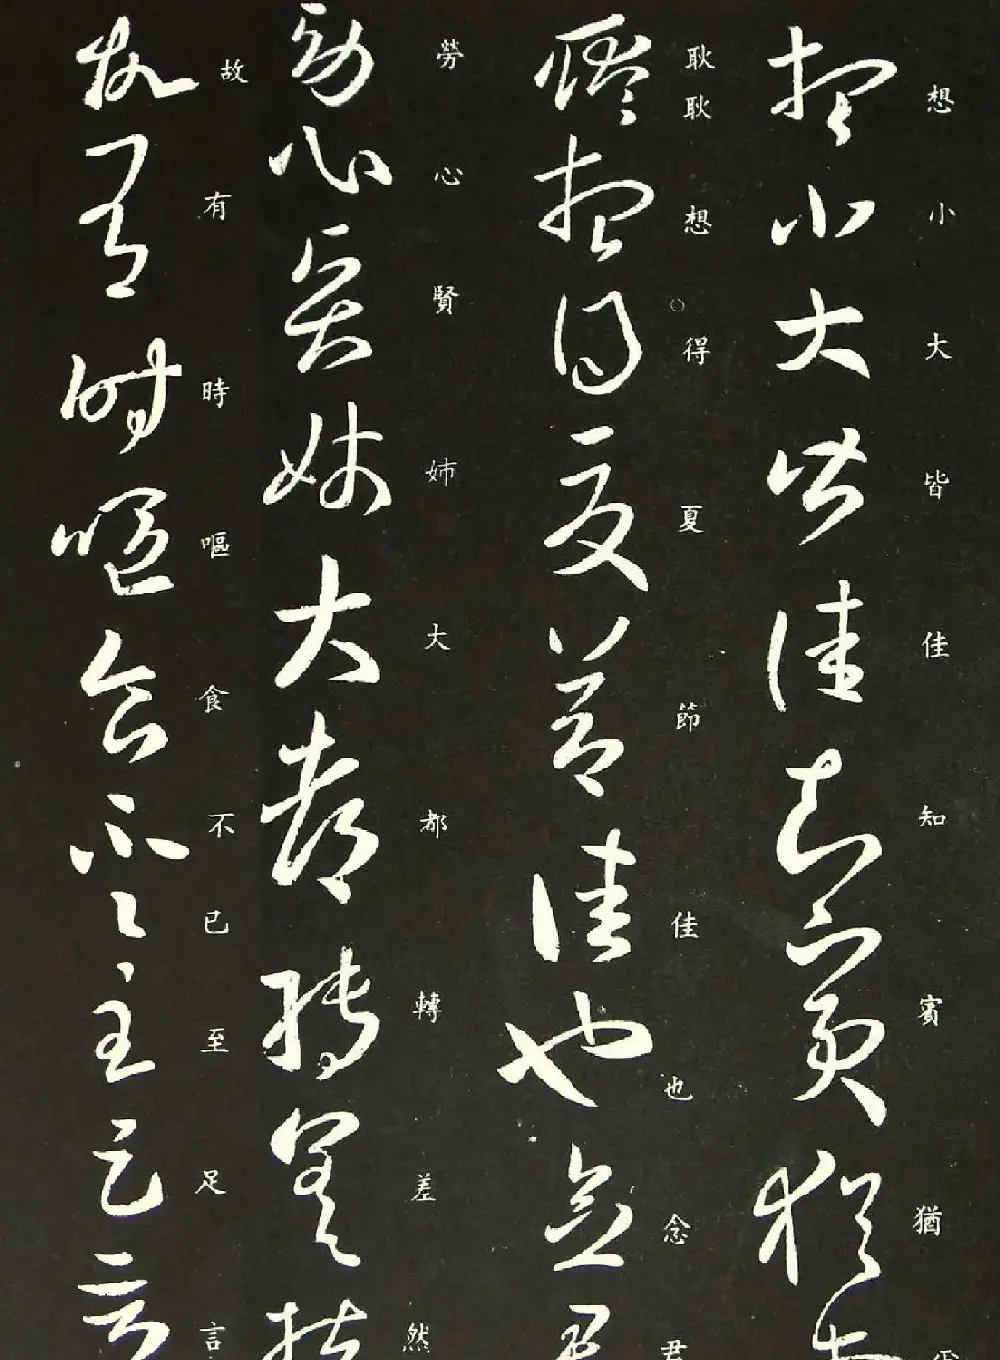 想小大皆佳知賓猶
耿耿想得夏節佳也念君
勞心賢姊大都轉差然
故有時嘔食不已至足言